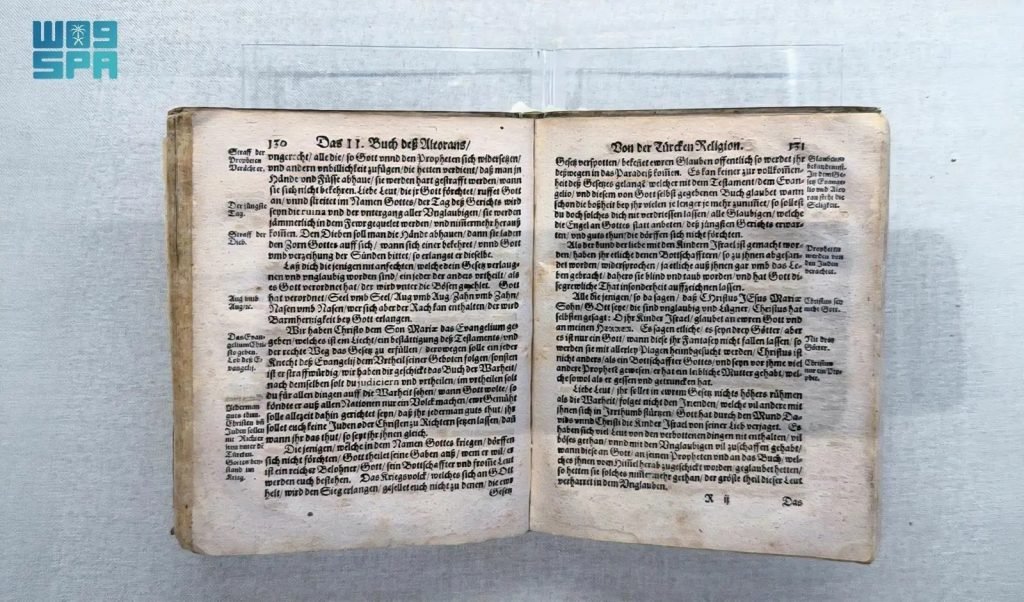 واس
SPA
130 Das II. Buch deß Alcorans/
Straff der
Propheten
Verächter.
vngerecht/ alle die/ so Gott vnnd den Propheten sich widersetzen/
vnd andern vnbillichkeit zufügen/ die hetten verdient/ daß man jn
Hände vnd Füsse abhaut/ sie werden hart gestrafft werden/ wann
sie sich nicht bekehren. Liebe Leut/ die jr Gott förchtet/ ruffet Gott
Der jüngste
Tag.
an/ vnnd streitet im Namen Gottes/ der Tag deß Gerichts wird
seyn die ruina vnd der vntergang aller Vnglaubigen/ sie werden
jämmerlich in dem Fewr gequelet werden/ vnd nimmermehr herauß
Straff der
Dieb.
kommen. Den Dieben soll man die Händt abhauen/ dann sie laden
den Zorn Gottes auff sich/ wann sich einer bekehret/ vnnd Gott
vmb verzeihung der Sünden bittet/ so erlanget er dieselbe.
Laß dich die jenigen nit anfechten/ welche dein Gesetz verlaug-
nen vnd vnglaubig worden sind/ ein jeder der anders vrtheilt/ als
es Gott verordnet hat/ der wird vnter die Bösen gezehlet. Gott
Aug vmb
Aug/etc.
hat verordnet/ Seel vmb Seel/ Aug vmb Aug/ Zahn vmb Zahn/
Nasen vmb Nasen/ wer sich aber der Rach kan enthalten/ der wird
Barmhertzigkeit bey Gott erlangen.
Das Evan-
gelium Chri-
sto geben.
Lob deß E-
vangelij.
Wir haben Christo dem Son Mariæ das Evangelium ge-
geben/ welches ist ein Liecht/ ein bestättigung deß Testaments/ vnd
der rechte Weg das Gesetz zu erfüllen/ derowegen solle ein jeder
Knecht deß Evangelij dem Vrtheil seiner Geboten folgen/ sonsten
ist er straffwürdig/ wir haben dir geschickt das Buch der Warheit/
nach demselben solt du judicieren vnd vrtheilen/ im vrtheilen solt
du für allen dingen auff die Warheit sehen/ wann Gott wolte/ so
Jederman
guts thun.
Christen vñ
Juden sollen
nit Richter
seyn vnter dē
Türcken.
Gottes bey-
stand im
Krieg.
köndte er auß allen Nationen nur ein Volck machen/ ewr Gemüht
solle allezeit dahin gerichtet seyn/ daß jhr jederman guts thut/ jhr
sollet euch keinen Juden oder Christen zu Richtern setzen lassen/ daß
wann jhr das thut/ so seyt jhr jhnen gleich.
Die jenigen/ welche in dem Namen Gottes kriegen/ dörffen
sich nicht förchten/ Gott theilet seine Gaben auß/ wem er wil/ er
ist ein reicher Belohner/ Gott/ sein Bottschaffter vnd fromme Leut
werden euch bestehen. Das Kriegsvolck/ welches sich an GOtt
helt/ wird den Sieg erlangen/ gesellet euch nicht zu denen/ die ewr
Gesetz
Von der Türcken Religion. 131
Gesetz verspotten/ bekeñet ewren Glauben offentlich so werdet jhr
deßwegen in das Paradeiß kommen. Es kan keiner zur vollkommen-
heit des Gesetzes gelangē/ welcher nit dem Testament/ dem Evan-
gelio/ vnd diesem von Gott selbst gegebenen Buch glaubet/ wann
schon die boßheit bey jhr vielen je lenger je mehr zunimmet/ so sollest
du doch solches dich nit verdriessen lassen/ alle Glaubigen/ welche
die Engel an Gottes statt anbeten/ deß jüngsten Gerichts erwar-
ten/ vnd guts thun/ die dörffen sich nicht förchten.
Glaubens
bekandtnuß.
In dem Ge-
setz Evange-
lio vnd Alco-
ran stehe die
Seligkeit.
Als der bund der liebe mit den Kindern Israel ist gemacht wor-
den/ haben jhr etliche denen Bottschafftern/ so zu jhnen abgesan-
det worden/ widersprochen/ ja etliche auß jhnen gar vmb das Le-
ben gebracht/ dahero sie blind vnd taub worden/ vnd hat Gott die-
se grewliche That insonderheit auffzeichnen lassen.
Propheten
werden von
den Juden
verachtet.
Alle die jenigen/ so da sagen/ daß CHristus JEsus Mariæ
Sohn/ GOtt seye/ die sind vnglaubig vnd Lügner/ Christus hat
selbsten gesagt: O jhr Kinder Israel/ glaubet an ewren Gott vnd
an meinen Herren. Es sagen etliche/ es seyn drey Götter/ aber
es ist nur ein Gott/ wann diese jhr Fantasey nicht fallen lassen/ so
werden sie mit allerley Plagen heimbgesucht werden/ Christus ist
nicht anders/ als ein Bottschaffter Gottes/ vnd seyn vor jhme viel
andere Propheten gewesen/ er hat ein leibliche Mutter gehabt/ wel-
che sowol als er gessen vnd getruncken hat.
Christus sey
nicht Gott.
Nit drey
Götter.
Christus
nur ein Pro-
phet.
Liebe Leut/ jhr sollet in ewrem Gesetz nichts höhers rühmen
als die Warheit/ folget nicht den Irrenden/ welche vil andere mit
jhnen sich in Irrthumb stürtzen/ Gott hat durch den Mund Da-
vids vnnd Christi die Kinder Israel von seiner Lieb verjaget. Es
haben sich viel Leut von den verbottenen dingen nit enthalten/ vil
böses gethan/ vnnd mit den Vnglaubigen vil zuschaffen gehabt/
wann diese an Gott/ an seinen Propheten vnd an das Buch/ wel-
ches jhnen vom Himmel herab zugeschickt worden/ geglaubet hetten/
so hetten sie solches nimmermehr gethan/ der gröste theil dieser Leut
verharret in dem Vnglauben.
R ij Das